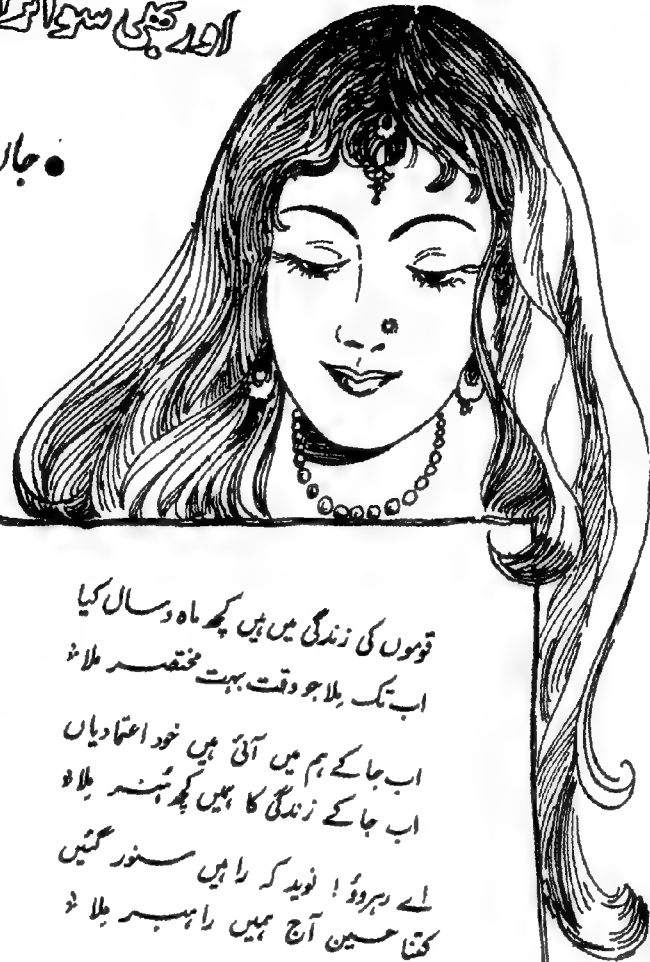 اور بھی سنوا
● جاں
قوموں کی زندگی میں ہیں کچھ ماہ و سال کیا
اب تک مِلا جو وقت بہت مختصر ملا
اب جا کے ہم میں آئی ہیں خود اعتمادیاں
اب جا کے زندگی کا ہمیں کچھ ہُنر مِلا
اے رہروؤ! نوید کہ راہیں سنور گئیں
کتنا حسین آج ہمیں راہبر مِلا